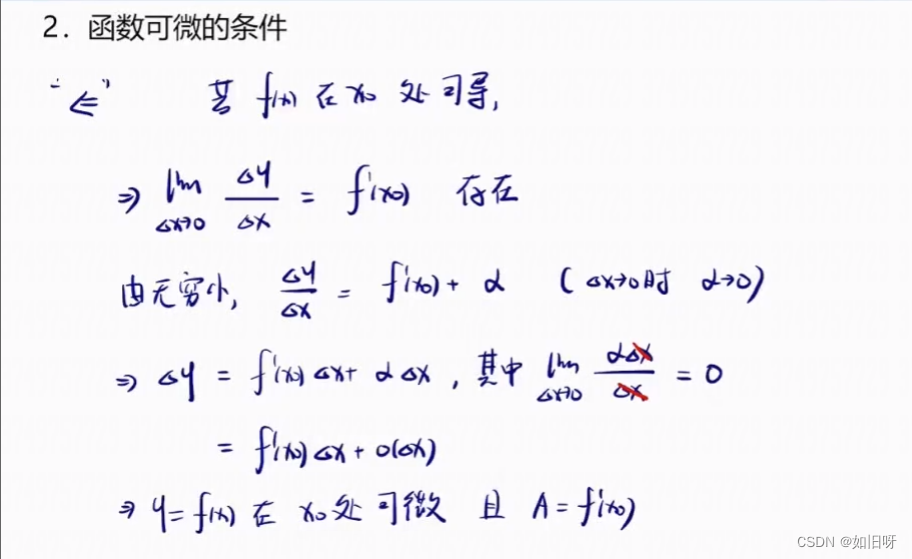 2. 函数可微的条件
“⇐” 若 f(x) 在 x₀ 处可导,
⇒ lim_{Δx→0} Δy/Δx = f'(x₀) 存在
由无穷小, Δy/Δx = f'(x₀) + α (Δx→0时 α→0)
⇒ Δy = f'(x₀)Δx + αΔx, 其中 lim_{Δx→0} αΔx/Δx = 0
= f'(x₀)Δx + o(Δx)
⇒ y = f(x) 在 x₀ 处可微 且 A = f'(x₀)
CSDN @如旧呀